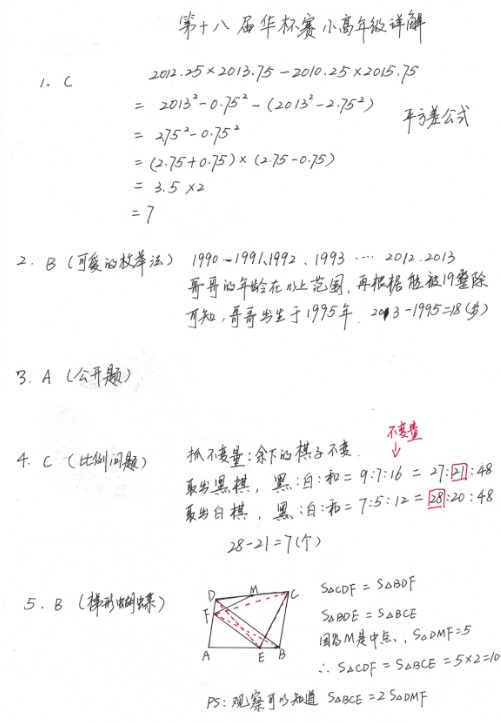 第十八届华杯赛小高年级详解
1. C 2012.25×2013.75-2010.25×2015.75
= 2013²-0.75²-(2013²-2.75²)
平方差公式
= 2.75²-0.75²
= (2.75+0.75)×(2.75-0.75)
= 3.5×2
= 7
2. B (可爱的枚举法) 1990-1991、1992、1993 …… 2012.2013
哥哥的年龄在以上范围,再根据能被19整除
可知,哥哥出生于1995年. 2013-1995=18(岁)
3. A (公开题)
不变量
4. C (比例问题) 抓不变量:余下的棋子不变.
取出黑棋, 黑:白:和=9:7:16 = 27:21:48
取出白棋, 黑:白:和=7:5:12 = 28:20:48
28-21=7(个)
5. B (梯形蝴蝶) D M C F A E B
S△CDF = S△BDF
S△BDE = S△BCE
因为M是中点, S△DMF=5
∴ S△CDF = S△BCE = 5×2=10
PS: 观察可以知道 S△BCE = 2S△DMF